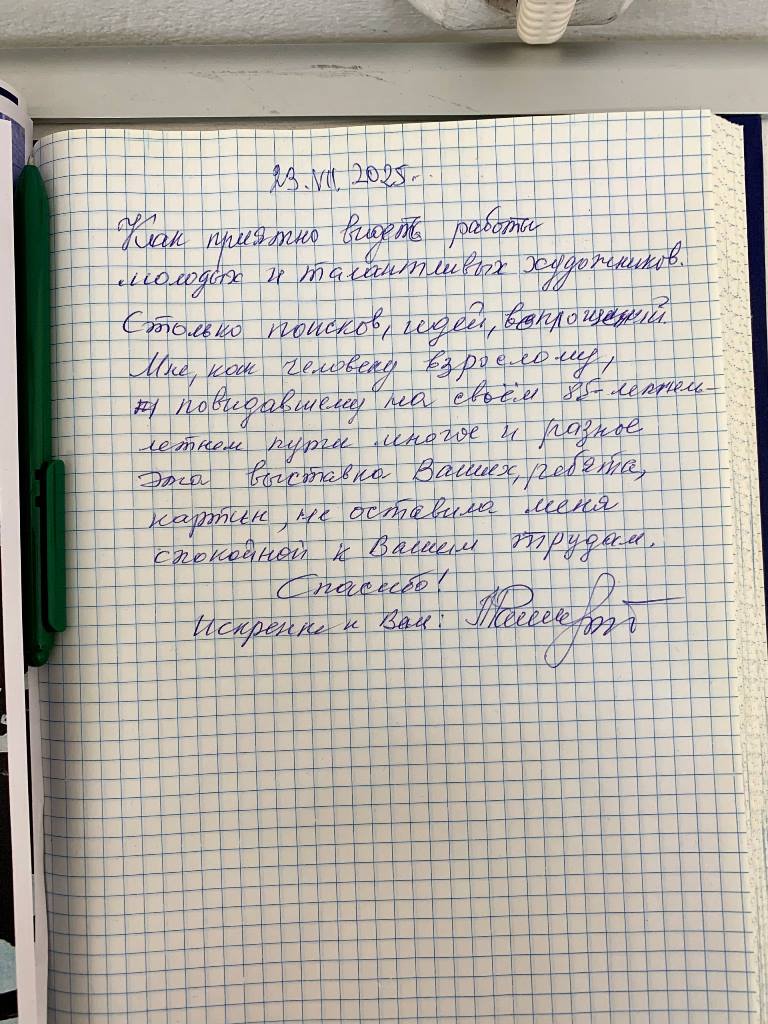 23.VII.2025..
Как приятно видеть работы
молодых и талантливых художников.
Столько поисков, идей, вопрощений.
Мне, как человеку взрослому,
повидавшему на своём 85-летель-
летнем пути многое и разное
Эта выставка Ваших, ребята,
картин, не оставила меня
спокойной к Вашим трудам.
Спасибо!
Искренне к Вам: